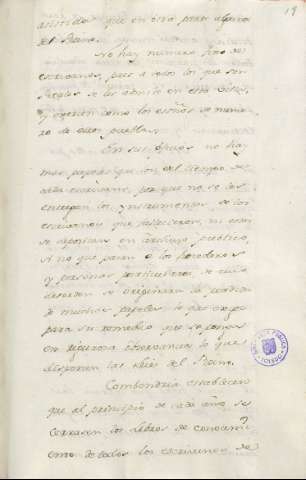 19
que en otra parte alguna
del Reino.
No hay numero fixo de
escrivanos, pues a todos los que son
Reales se les admite en esta Villa,
y exercen como los de nume
ro de otros pueblos.
En sus oficios no hay
mas papeles que los del tiempo de
cada escrivano, por que no se les
entregan los ynstrumentos de los
escrivanos que fallecieron, ni estos
se depositan en archivo publico,
si no que paran a los herederos
y personas particulares, de cuio
desorden se originaran la perdida
de muchos papeles, lo que exige
para su remedio que se ponga
en rigurosa observancia lo que
disponen las leies del Reino.
Combendria establecer
que al principio de cada año, se
cerrasen los libros de conocimi
ento de todos los escrivanos de